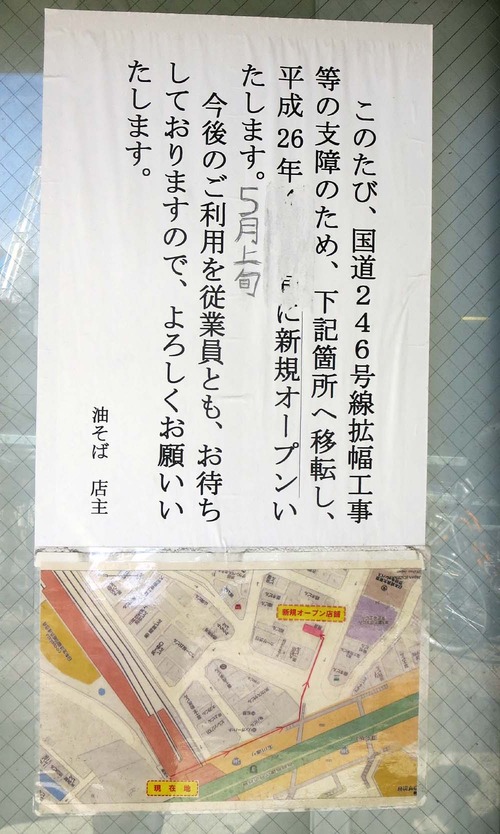 このたび、国道２４６号線拡幅工事
等の支障のため、下記箇所へ移転し、
平成26年
に新規オープンい
たします。
5月上旬
今後のご利用を従業員とも、お待ち
しておりますので、よろしくお願いい
たします。
油そば 店主
新規オープン店舗
現在地